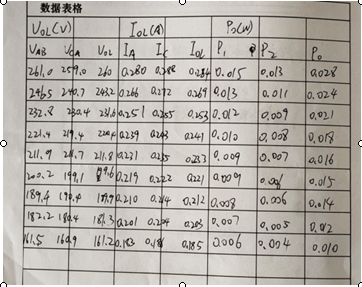 数据表格
U₀L(V) I₀L(A) P₀(W)
UAB UCA U₀L IA IC I₀L P₁ P₂ P₀
261.0 259.0 260 0.280 0.288 0.284 0.015 0.013 0.028
246.5 240.7 243.2 0.266 0.272 0.269 0.013 0.011 0.024
232.8 230.4 231.6 0.251 0.255 0.253 0.012 0.009 0.021
221.4 219.4 220.4 0.239 0.243 0.241 0.010 0.008 0.018
211.9 211.7 211.8 0.231 0.235 0.233 0.009 0.007 0.016
200.2 199.1 199.6 0.219 0.222 0.221 0.009 0.006 0.015
189.4 190.4 189.9 0.210 0.214 0.212 0.008 0.006 0.014
182.2 180.4 181.3 0.201 0.204 0.203 0.007 0.005 0.012
161.5 160.9 161.2 0.183 0.186 0.185 0.006 0.004 0.010